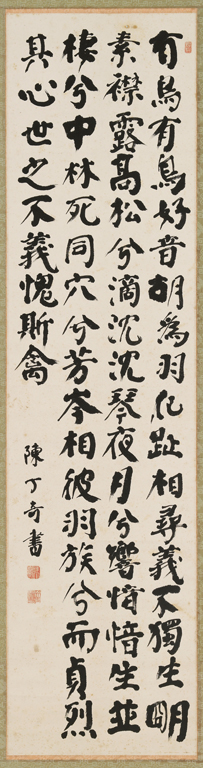 有鳥有鳥好音胡為羽化趾相尋義不獨生明
素襟露高松兮滴沈沈琴夜月兮響愔愔生並
棲兮中林死同穴兮芳岑相彼羽族兮而貞烈
其心世之不義愧斯禽
陳丁奇書